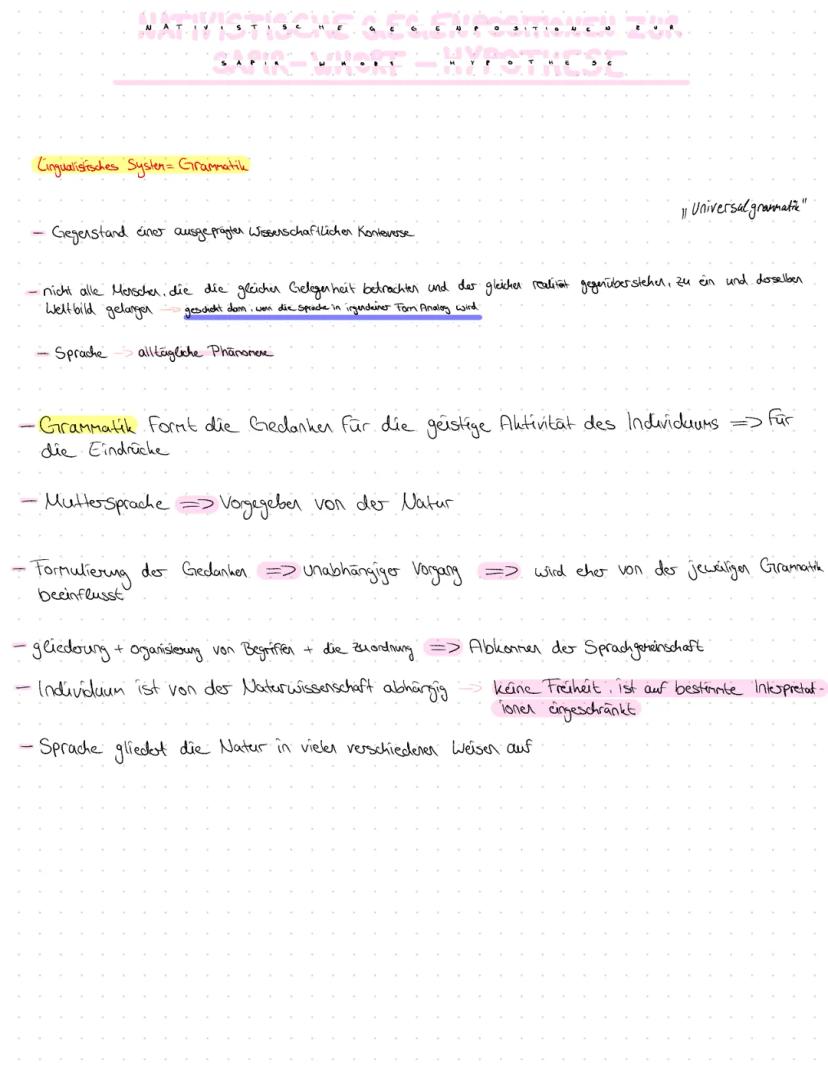 NATIVISTISCHE GEGENPOSITIONEN ZUR
SAPIR-WHORF-HYPOTHESE
Linguistisches System = Grammatik
„Universalgrammatik"
- Gegenstand einer ausgeprägten wissenschaftlichen Kontroverse
- nicht alle Menschen, die die gleichen Gelegenheit betrachten und der gleichen realität gegenüberstehen, zu ein und derselben
Weltbild gelangen → geschieht dann, wenn die Sprache in irgendeiner Form Analog wird
- Sprache → alltägliche Phänomene
- Grammatik Formt die Gedanken für die geistige Aktivität des Individuums => für
die Eindrücke
- Muttersprache => Vorgegeben von der Natur
- Formulierung der Gedanken => unabhängiger Vorgang => wird eher von der jeweiligen Grammatik
beeinflusst
- gliederung + organisierung von Begriffen + die zuordnung => Abkommen der Sprachgemeinschaft
- Individuum ist von der Naturwissenschaft abhängig → keine Freiheit, ist auf bestimmte Interpretat-
ionen eingeschränkt
- Sprache gliedert die Natur in vielen verschiedenen Weisen auf